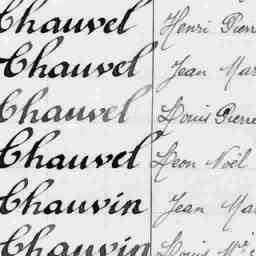 Chauvel Henri Pierre
Chauvel Jean Mar
Chauvel Louis Pierre
Chauvel Léon Noël
Chauvin Jean Ma
Chauvin Louis